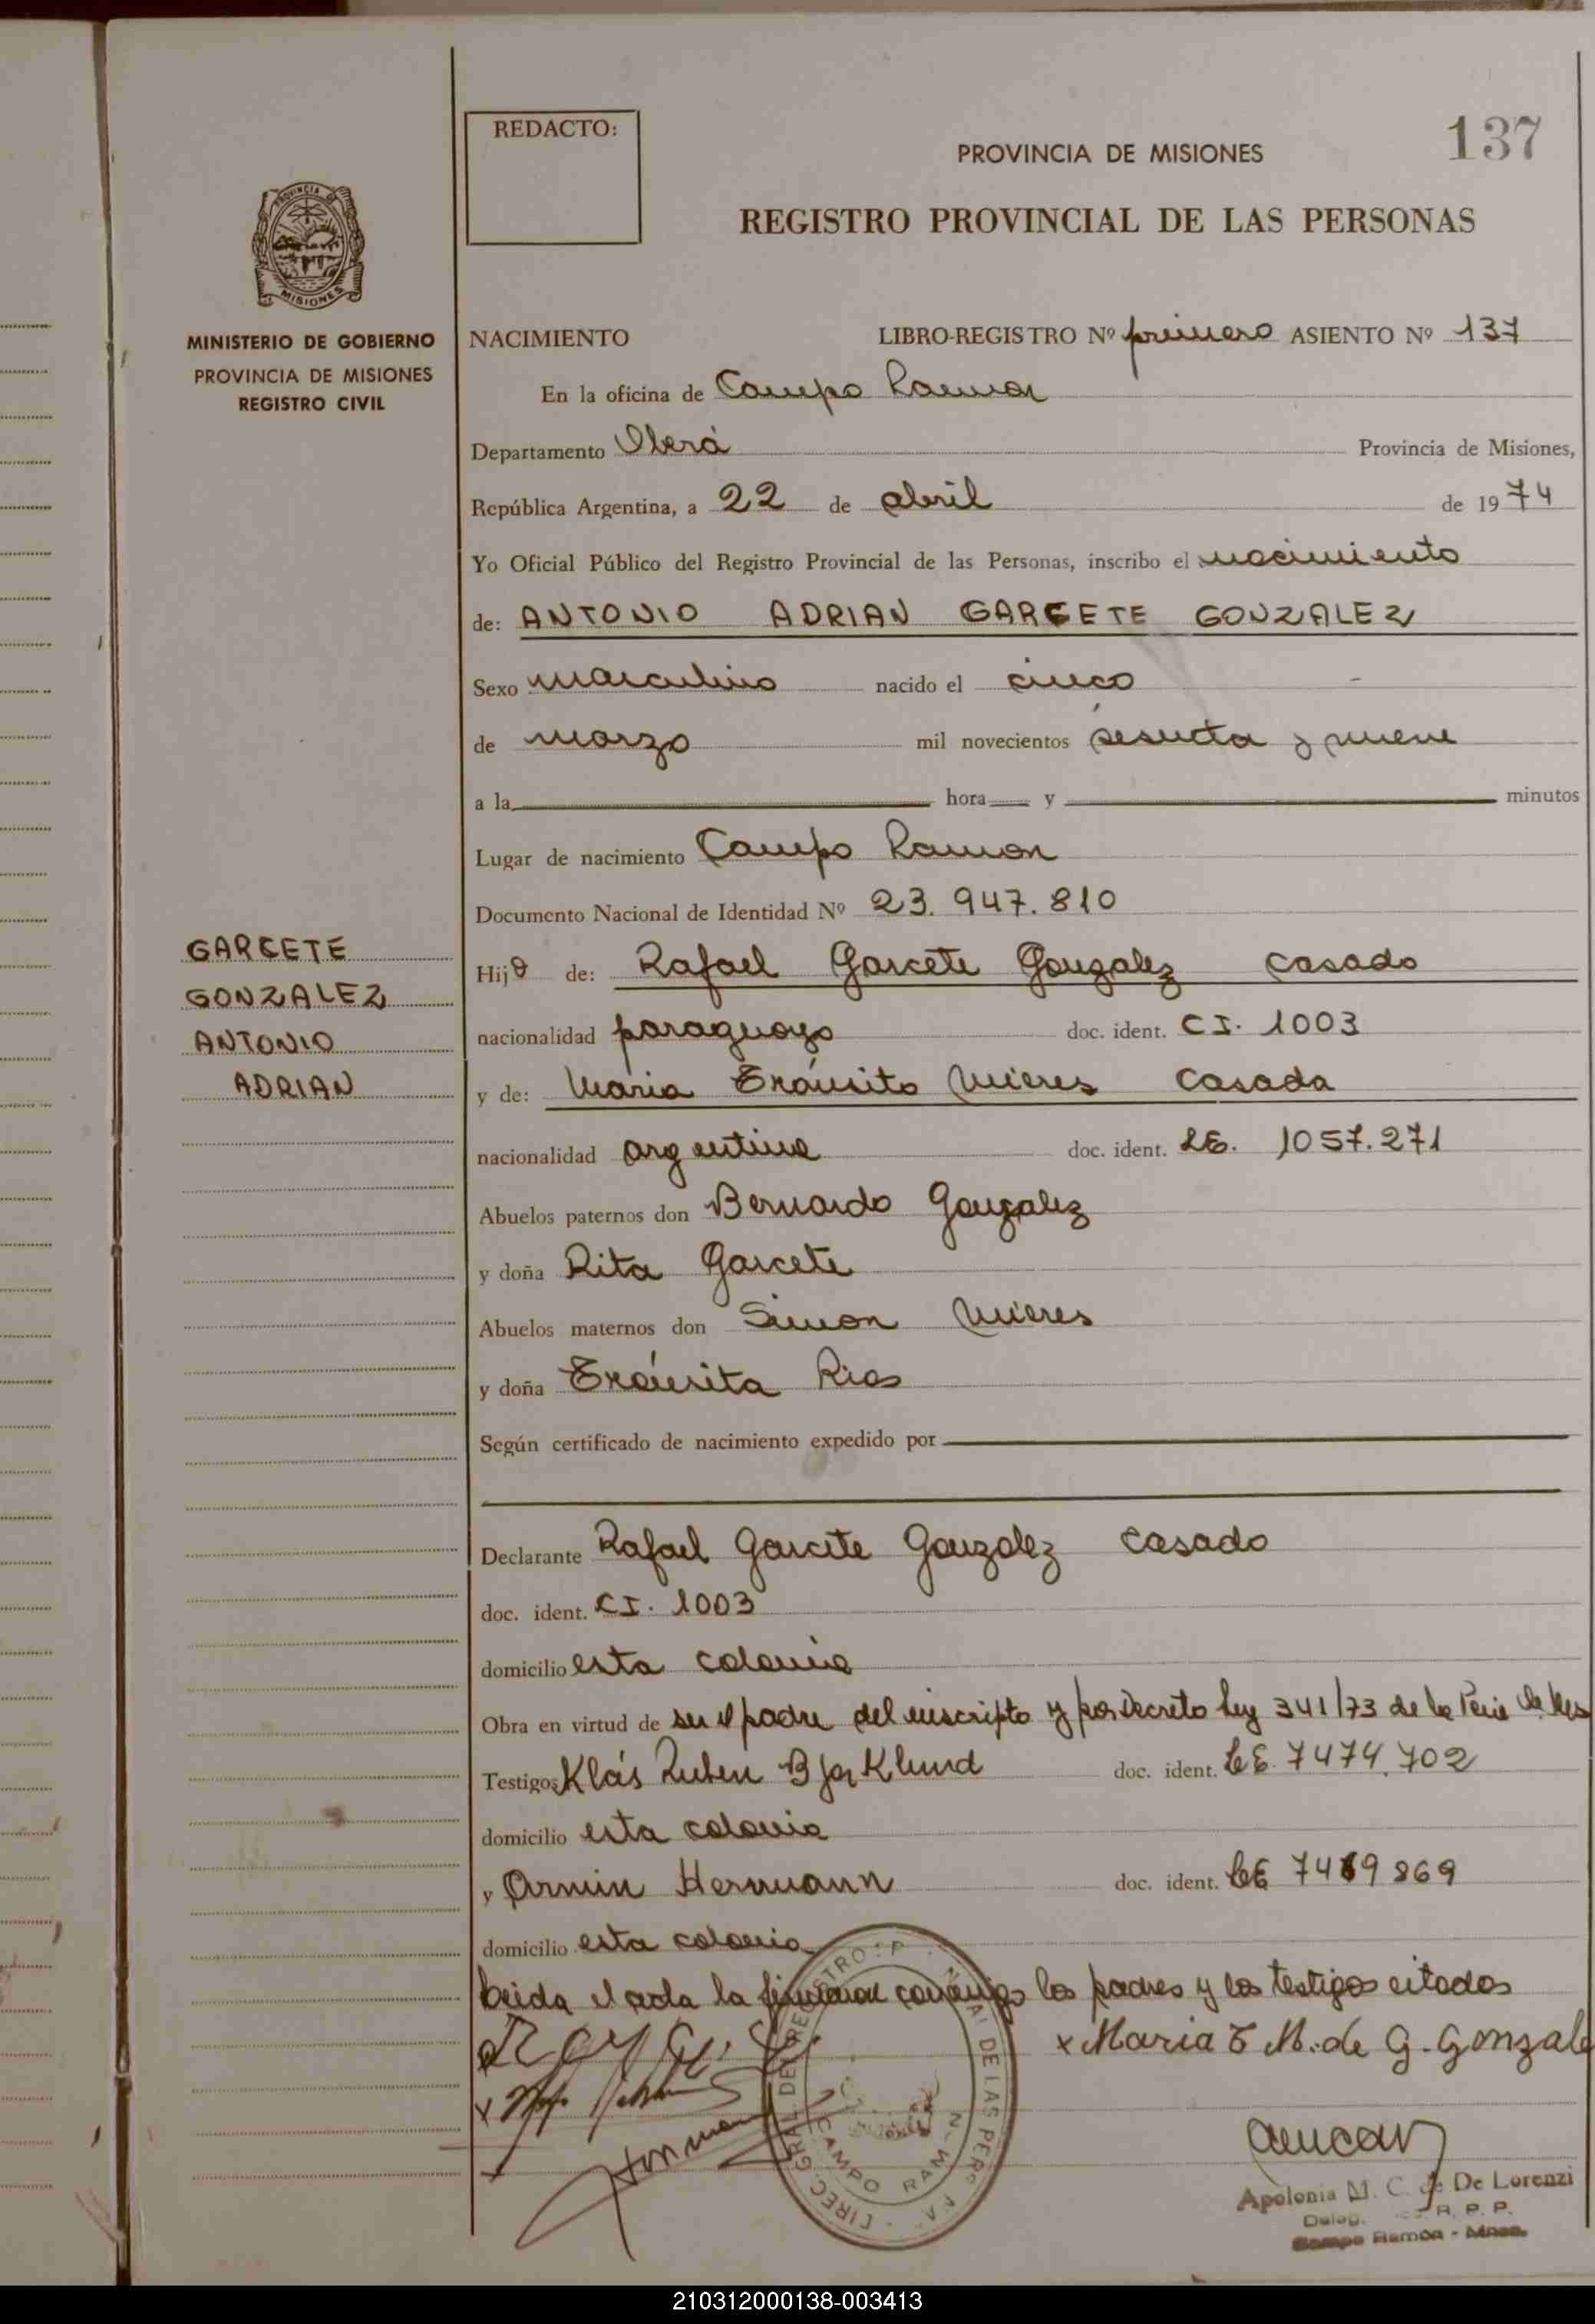 REDACTO:
137
PROVINCIA DE MISIONES
REGISTRO PROVINCIAL DE LAS PERSONAS
PROVINCIA
MISIONES
MINISTERIO DE GOBIERNO
PROVINCIA DE MISIONES
REGISTRO CIVIL
NACIMIENTO LIBRO-REGISTRO Nº primero ASIENTO Nº 137
En la oficina de Campo Ramon
Departamento Oberá Provincia de Misiones,
República Argentina, a 22 de abril de 1974
Yo Oficial Público del Registro Provincial de las Personas, inscribo el nacimiento
de: ANTONIO ADRIAN GARCETE GONZALEZ
Sexo masculino nacido el cinco
de marzo mil novecientos sesenta y nueve
a la hora y minutos
Lugar de nacimiento Campo Ramon
Documento Nacional de Identidad Nº 23.947.810
GARCETE
GONZALEZ
ANTONIO
ADRIAN
Hijo de: Rafael Garcete Gonzalez casado
nacionalidad paraguayo doc. ident. CI. 1003
y de: Maria Tránsito Mieres casada
nacionalidad argentina doc. ident. LE. 1057.271
Abuelos paternos don Bernardo Gonzalez
y doña Rita Garcete
Abuelos maternos don Simon Mieres
y doña Tránsita Rios
Según certificado de nacimiento expedido por
Declarante Rafael Garcete Gonzalez casado
doc. ident. CI. 1003
domicilio esta colonia
Obra en virtud de ser el padre del inscripto y por Decreto Ley 341/73 de la
Testigos Klás Ruben Bjorklund doc. ident. LE. 7474.702
domicilio esta colonia
y Armin Hermann doc. ident. LE 7469869
domicilio esta colonia
leida el acta la firman conmigo los padres y los testigos citados
x Maria T M. de G. Gonzale
CAMPO RAMON
Apolonia M. C. de De Lorenzi
Deleg. R. P. P.
Campo Ramón - Mnes.
210312000138-003413